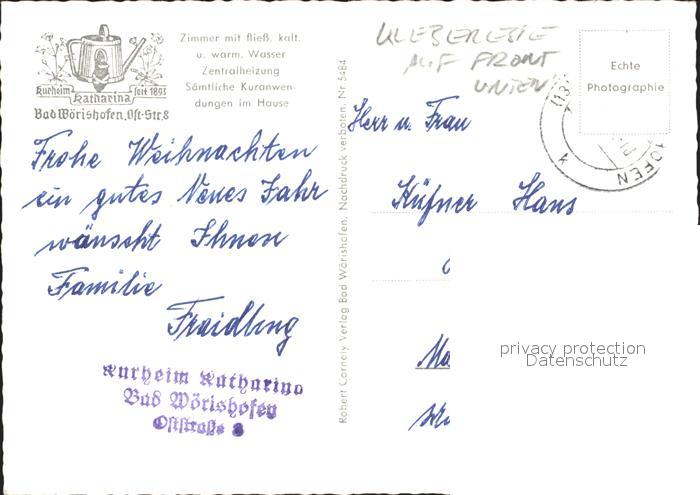 Kurheim seit 1893
Katharina
Bad Wörishofen, Ost-Str. 8
Zimmer mit fließ. kalt.
u. warm. Wasser
Zentralheizung
Sämtliche Kuranwen-
dungen im Hause
Frohe Weihnachten
ein gutes Neues Jahr
wünscht Ihnen
Familie
Fraidling
Kurheim Katharina
Bad Wörishofen
Oststraße 8
Robert Cornely Verlag Bad Wörishofen. Nachdruck verboten. Nr 5484
KLEBERESTE
AUF FRONT
UNTEN
Echte
Photographie
(13
HOFEN
Herr u. Frau
Küfner Hans
Ma
privacy protection
Datenschutz